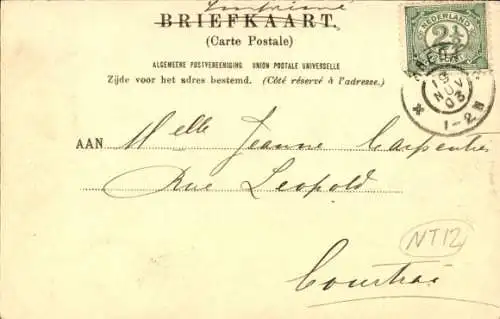 Imprimé
BRIEFKAART.
(Carte Postale)
ALGEMEENE POSTVEREENIGING UNION POSTALE UNIVERSELLE
Zijde voor het adres bestemd. (Côté réservé à l'adresse.)
NEDERLAND
2½
19
NOV
03
1-2N
AAN Melle Jeanne Carpentier
Rue Leopold
NT12
Courtrai